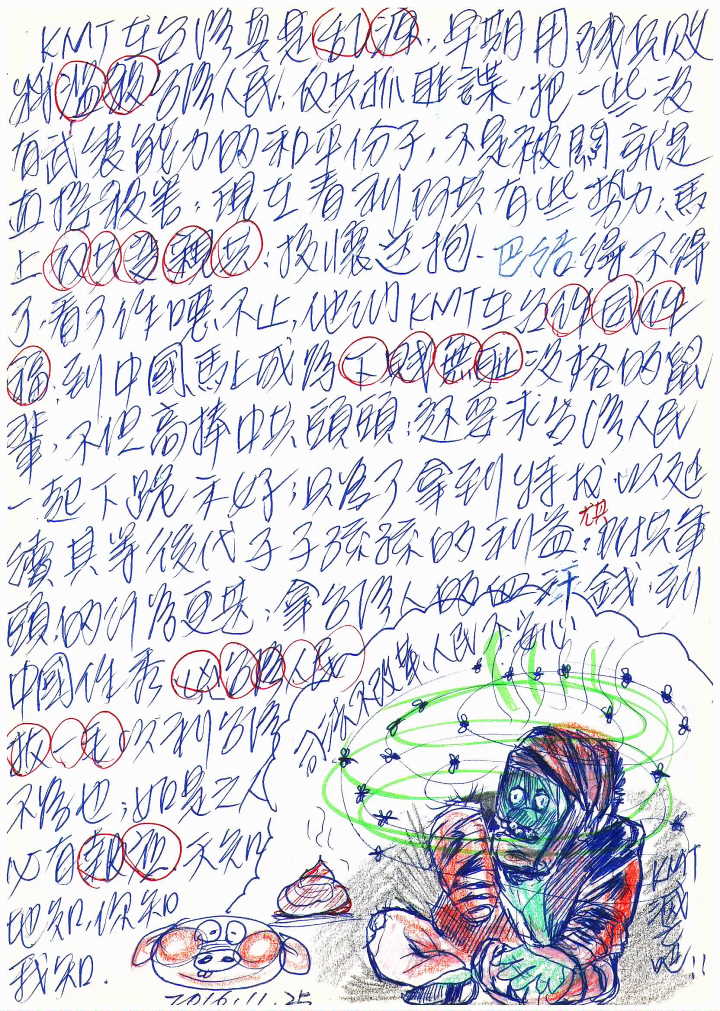 KMT在台灣真是亂源，早期用殘兵敗
將濫殺台灣人民，仇共抓匪諜，把一些沒
有武裝能力的和平份子，不是被關就是
直接殺害；現在看到阿共有些勢力；馬
上仇共變親共；投懷送抱，巴結得不得
了，看了作噁不止，他們KMT在台作威作
福，到中國馬上成為下賤無恥沒格的鼠
輩，不但高捧中共頭頭；還要求台灣人民
一起下跪示好；只為了拿到特權以延
續其等後代子子孫孫的利益；尤其軍
頭的行為更甚；拿台灣人的四許錢，到
中國作秀
拔一毛以利台灣
不為也；如是之人
必有報應 天知
地知，你知
我知．
台灣不改革、人民不安心
KMT
滅
吧!!
2016.11.25